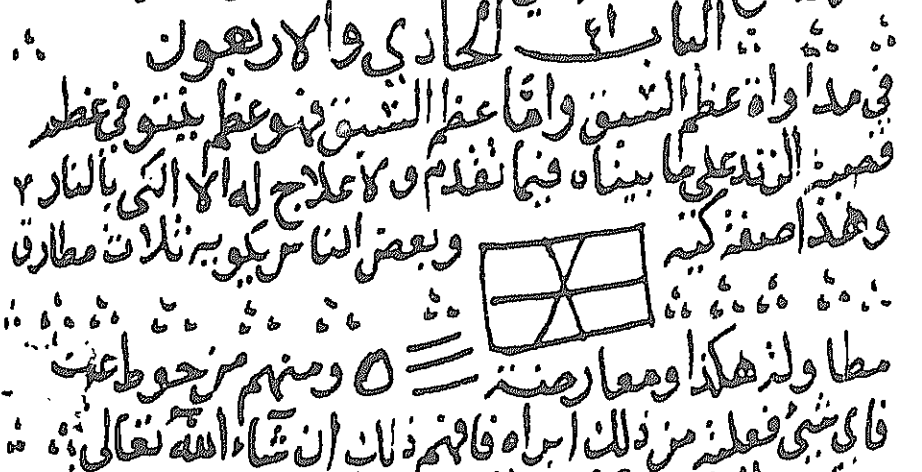 الباب ٤١ الحادي والاربعون
في مداواة عظم الشبق وامّا عظم الشبق فهو عظم ينبتو في عظم
قصبة الزند على ما بيناه فيما تقدم ولا علاج له الا الكي بالنار
وهذا صفة كيه وبعض الناس يكويه ثلاث مطارق
مطاولة هكذا ومعارضة ومنهم من حوط عليه
فاي شي فعله من ذلك ابراه فافهم ذلك ان شاء الله تعالى